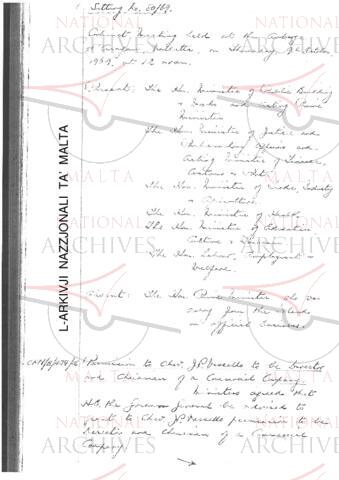 Sitting No. 50/69.
Cabinet Meeting held at the Auberge
d'Aragon, Valletta, on Thursday, 9th October,
1969, at 12 noon.
Present: The Hon. Minister of Public Building
& Works and Acting Prime
Minister
The Hon. Minister of Justice and
Parliamentary Affairs and
Acting Minister of Finance,
Customs &
The Hon. Minister of Trade, Industry
& Agriculture.
The Hon. Minister of Health.
The Hon. Minister of Education,
Culture &
The Hon. Labour, Employment &
Welfare.
Absent: The Hon. Prime Minister who was
away from the Island
on official business.
Permission to Chev. J.P. Vassallo to be Director
and Chairman of a Commercial Company
Ministers agreed that
H.E. the Governor General be advised to
grant to Chev. J.P. Vassallo permission to be
Director and Chairman of a Commercial
Company.
L-ARKIVJI NAZZJONALI TA' MALTA
NATIONAL
ARCHIVES
MALTA